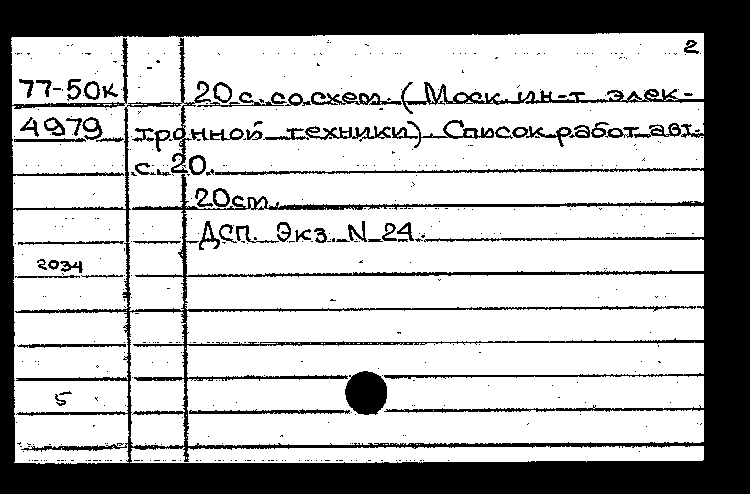 2
77-50к 20 с. со схем. (Моск. ин-т элек-
4979 тронной техники). Список работ авт.
с. 20.
20 см.
ДСП. Экз. N 24.
2034
5